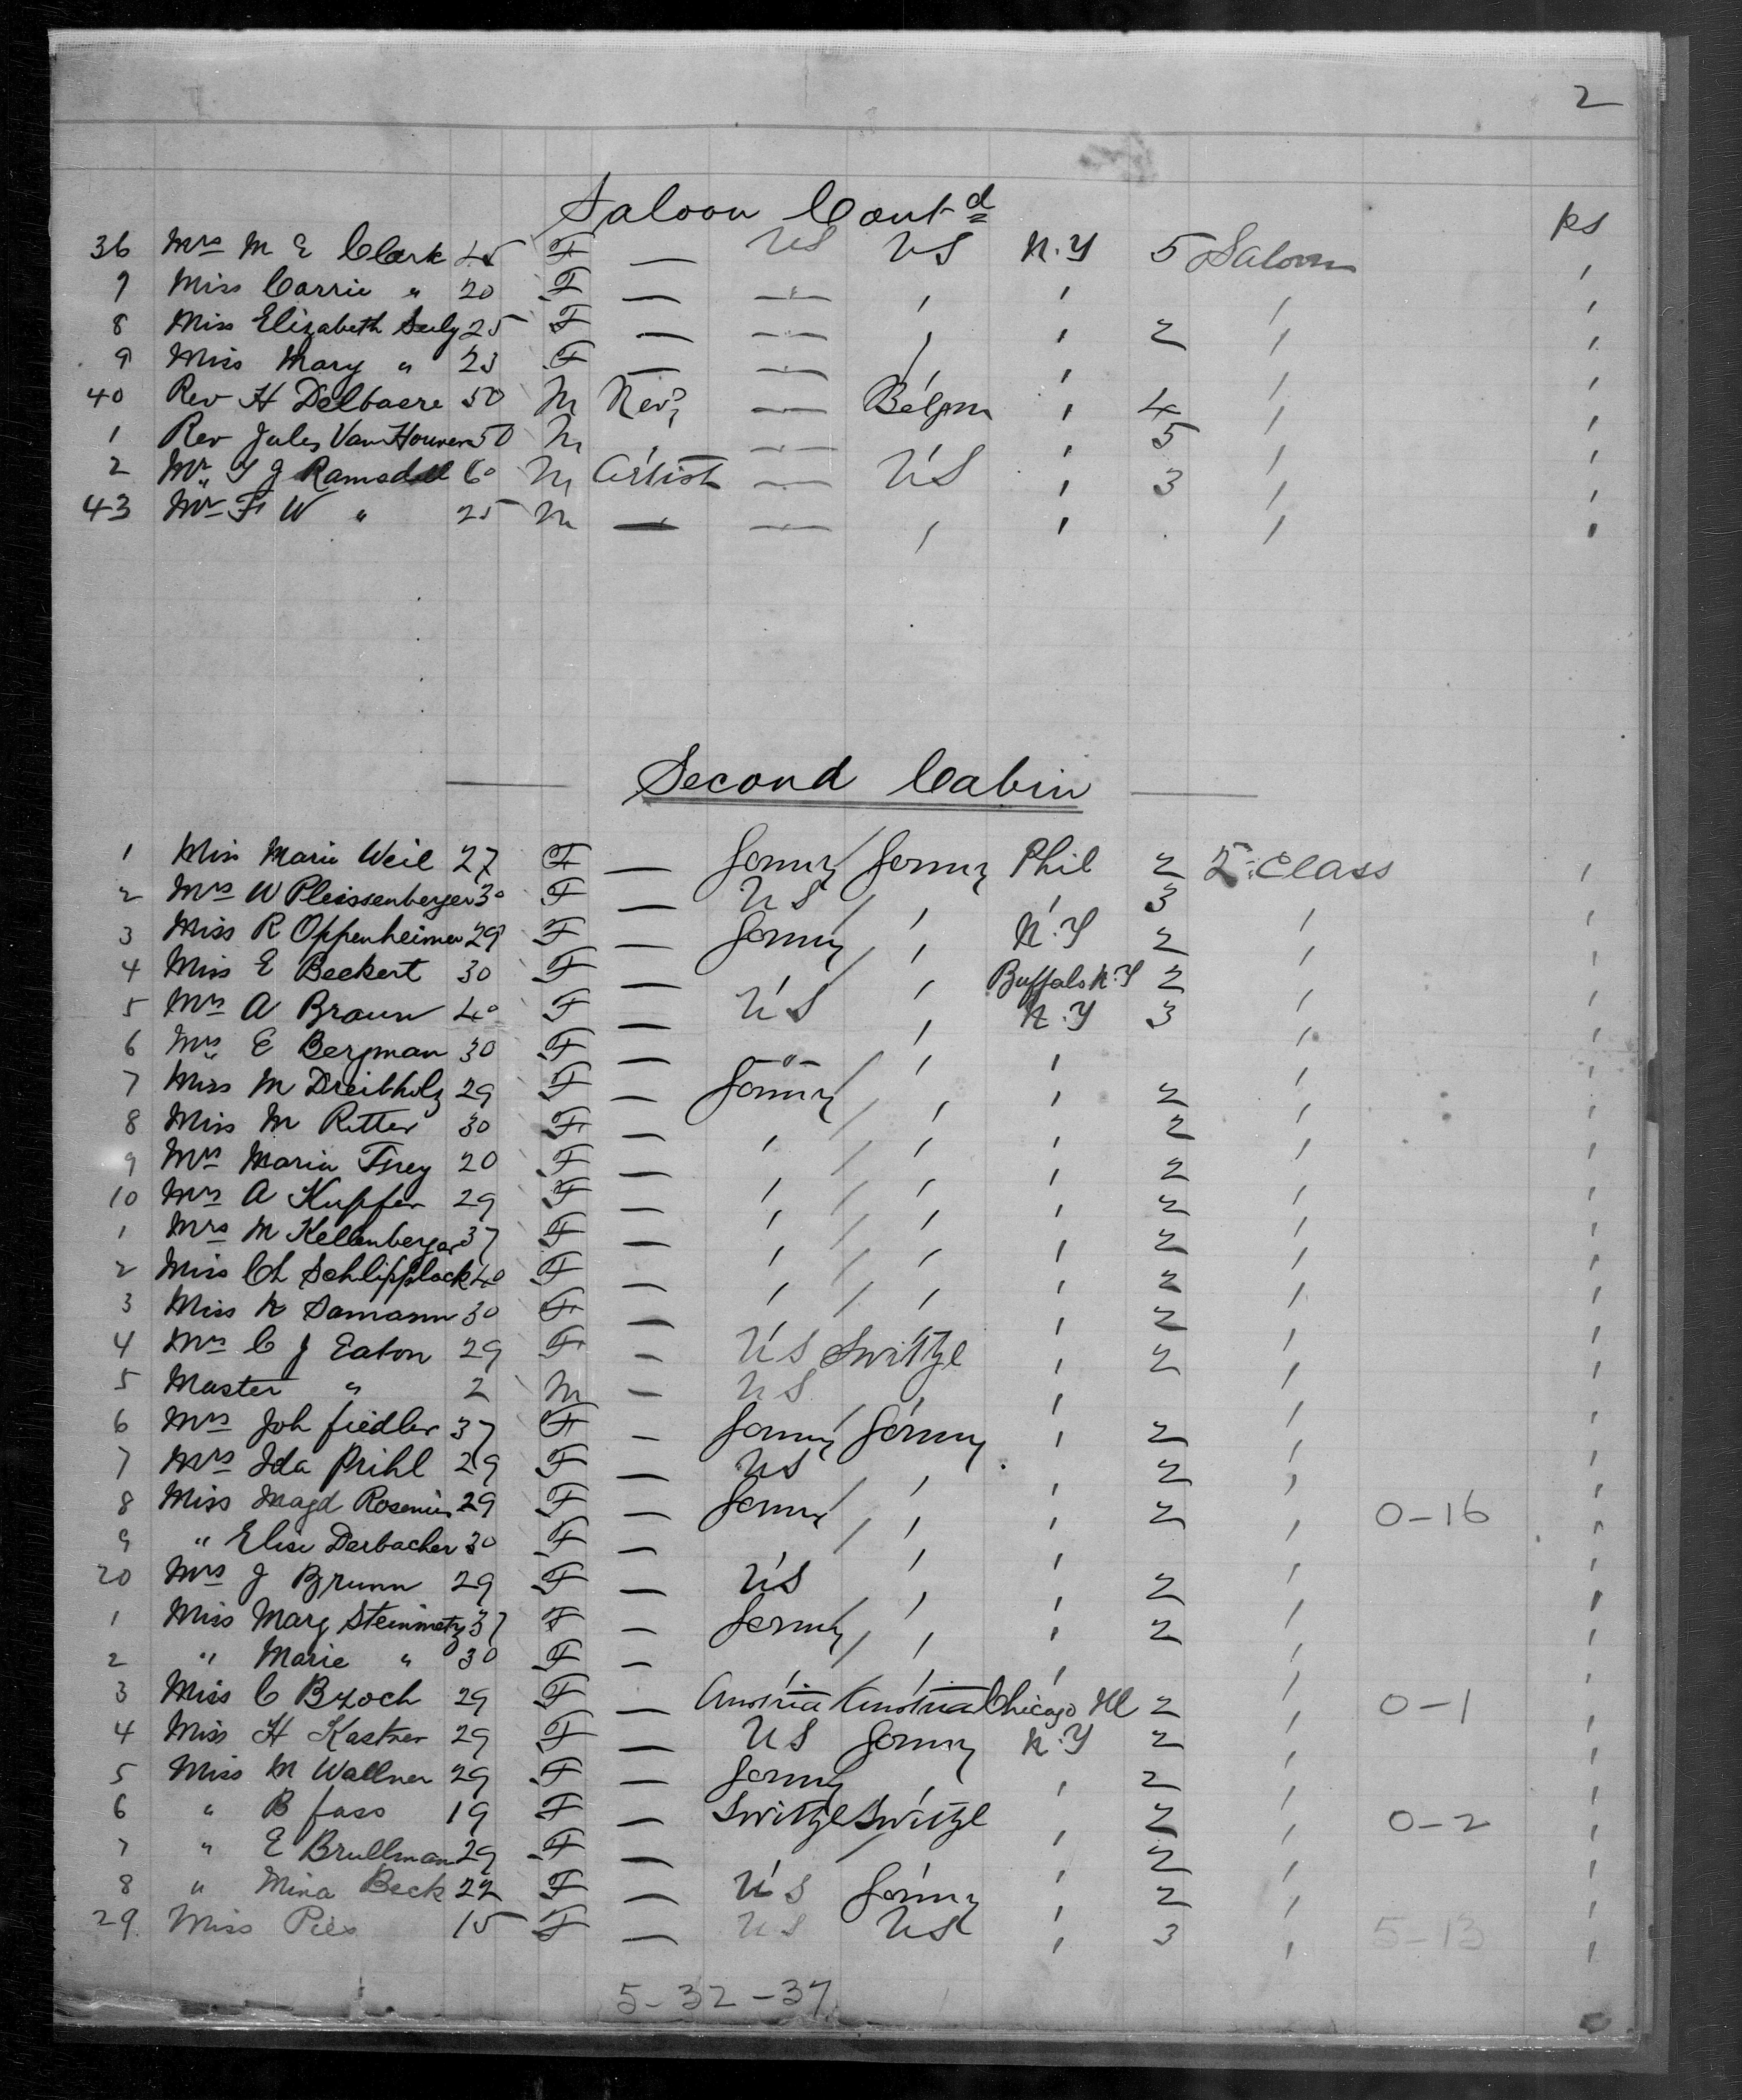 2
Saloon Cont d
ps
36 Mrs M E Clark 45 F — US US N.Y 5 Saloon
7 Miss Carrie " 20 F — — ' ' '
8 Miss Elizabeth Seely 25 F — — ' ' 2 '
9 Miss Mary " 23 F — — ' ' '
40 Rev H Delbaere 50 M Revd — Belgm ' 4 '
1 Rev Jules Van Houver 50 M ' — ' 5 '
2 Mr J Ramsdell 60 M Artist — US ' 3 '
43 Mr F W " 25 M — — ' ' '
— Second Cabin —
1 Miss Marie Weil 27 F — Germy / Germy Phil 2 2: Class
2 Mrs W Pleissenberger 30 F — US / ' ' 3 '
3 Miss R Oppenheimer 29 F — Germy / ' N.Y 2 '
4 Miss E Beckert 30 F — ' / ' Buffalo N.Y 2 '
5 Mrs A Braun 40 F — US ' N.Y 3 '
6 Mrs E Bergman 30 F — -"- / ' ' '
7 Miss M Dreibholz 29 F — Germy / ' ' 2 '
8 Miss M Ritter 30 F — ' / ' ' 2 '
9 Mrs Maria Frey 20 F — ' / ' ' 2 '
10 Mrs A Kupfer 29 F — ' / ' ' 2 '
1 Mrs M Kellenberger 37 F — ' / ' ' 2 '
2 Miss Ch Schlipplack 40 F — ' / ' ' 2 '
3 Miss K Samann 30 F — ' / ' ' 2 '
4 Mrs C J Eaton 29 F — US Switzl ' 2 '
5 Master " 2 M — US ' ' '
6 Mrs Joh Fiedler 37 F — Germy / Germy ' 2 '
7 Mrs Ida Prihl 29 F — US ' ' 2 '
8 Miss Magd Rosenius 29 F — Germy / ' ' 2 ' 0-16
9 " Elise Derbacher 30 F — ' / ' ' '
20 Mrs J Brunn 29 F — US ' ' 2 '
1 Miss Marg Steinmetz 37 F — Germy / ' ' 2 '
2 " Marie " 30 F — ' / ' ' '
3 Miss C Bzoch 29 F — Austria / Austria Chicago Ill 2 ' 0-1
4 Miss H Kastner 29 F — US Germy N.Y 2 '
5 Miss M Wallner 29 F — Germy ' ' 2 '
6 " B Fass 19 F — Switzl Switzl ' 2 ' 0-2
7 " E Brullman 29 F — ' / ' ' 2 '
8 " Mina Beck 22 F — US Germy ' 2 '
29 Miss Pies 15 F — US US ' 3 ' 5-13
5-32-37